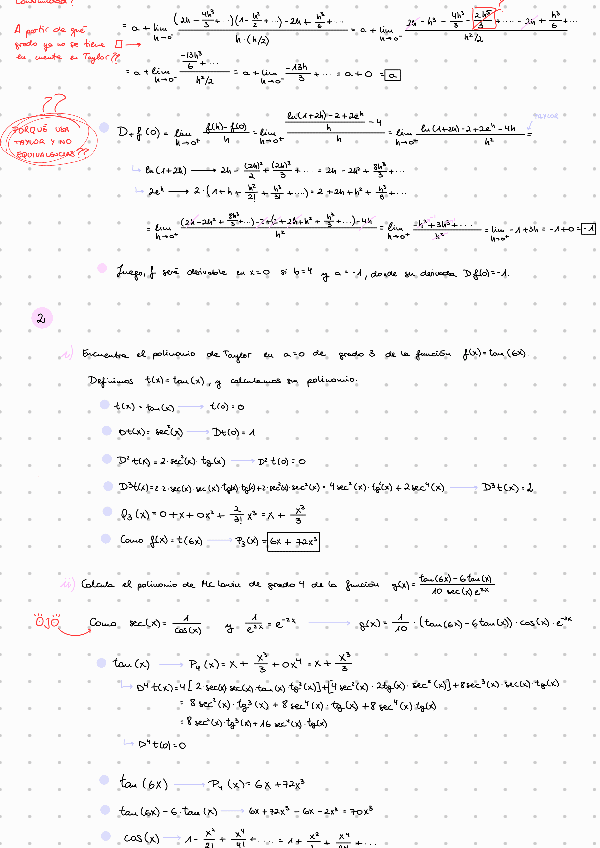 A partir de qué
grado ya no se tiene
en cuenta en Taylor??
= a + lim h→0⁻ ((2h - 4h³/3 + ...)(1 - h²/2 + ...) - 2h + h³/6 + ...)/(h·(h/2)) = a + lim h→0⁻ (2h - h³ - 4h³/3 - 2h⁵/3 + ... - 2h + h³/6 + ...)/(h²/2)
= a + lim h→0⁻ (-13h³/6 + ...)/(h²/2) = a + lim h→0⁻ -13h/3 + ... = a + 0 = a
??
PORQUÉ USA
TAYLOR Y NO
EQUIVALENCIAS??
D₊f(0) = lim h→0⁺ (f(h) - f(0))/h = lim h→0⁺ ((ln(1+2h) - 2 + 2eʰ)/h - 4)/h = lim h→0⁺ (ln(1+2h) - 2 + 2eʰ - 4h)/h² =
TAYLOR
ln(1+2h) → 2h - (2h)²/2 + (2h)³/3 + ... = 2h - 2h² + 8h³/3 + ...
2eʰ → 2·(1 + h + h²/2! + h³/3! + ...) = 2 + 2h + h² + h³/3 + ...
= lim h→0⁺ ((2h - 2h² + 8h³/3 + ...) - 2 + (2 + 2h + h² + h³/3 + ...) - 4h)/h² = lim h→0⁺ (-h² + 3h³ + ...)/h² = lim h→0⁺ -1 + 3h = -1 + 0 = -1
Luego, f será derivable en x=0 si b=4 y a=-1, donde su derivada Df(0)=-1.
2
i) Encuentra el polinomio de Taylor en a=0 de grado 3 de la función f(x)=tan(6x)
Definimos t(x)=tan(x), y calculamos su polinomio.
t(x) = tan(x) → t(0)=0
Dt(x) = sec²(x) → Dt(0)=1
D²t(x) = 2·sec²(x)·tg(x) → D²t(0)=0
D³t(x) = 2·2·sec(x)·sec(x)·tg(x)·tg(x) + 2·sec²(x)·sec²(x) = 4sec²(x)·tg²(x) + 2sec⁴(x) → D³t(x)=2
P₃(x) = 0 + x + 0x² + 2/3! x³ = x + x³/3
Como f(x) = t(6x) → P₃(x) = 6x + 72x³
ii) Calcula el polinomio de Mc laurin de grado 4 de la función g(x) = (tan(6x) - 6tan(x))/(10 sec(x) e²ˣ)
OJO
Como sec(x) = 1/cos(x) y 1/e²ˣ = e⁻²ˣ → g(x) = 1/10·(tan(6x) - 6tan(x))·cos(x)·e⁻²ˣ
tan(x) → P₄(x) = x + x³/3 + 0x⁴ = x + x³/3
D⁴t(x) = 4[2 sec(x) sec(x)·tan(x) tg²(x)] + [4sec²(x)·2tg(x)·sec²(x)] + 8sec³(x)·sec(x)·tg(x)
= 8sec²(x)·tg³(x) + 8sec⁴(x)·tg(x) + 8sec⁴(x)tg(x)
= 8sec²(x)·tg³(x) + 16sec⁴(x)·tg(x)
D⁴t(0)=0
tan(6x) → P₄(x) = 6x + 72x³
tan(6x) - 6·tan(x) → 6x + 72x³ - 6x - 2x³ = 70x³
cos(x) → 1 - x²/2! + x⁴/4! + ... = 1 + x²/2 + x⁴/24 + ...